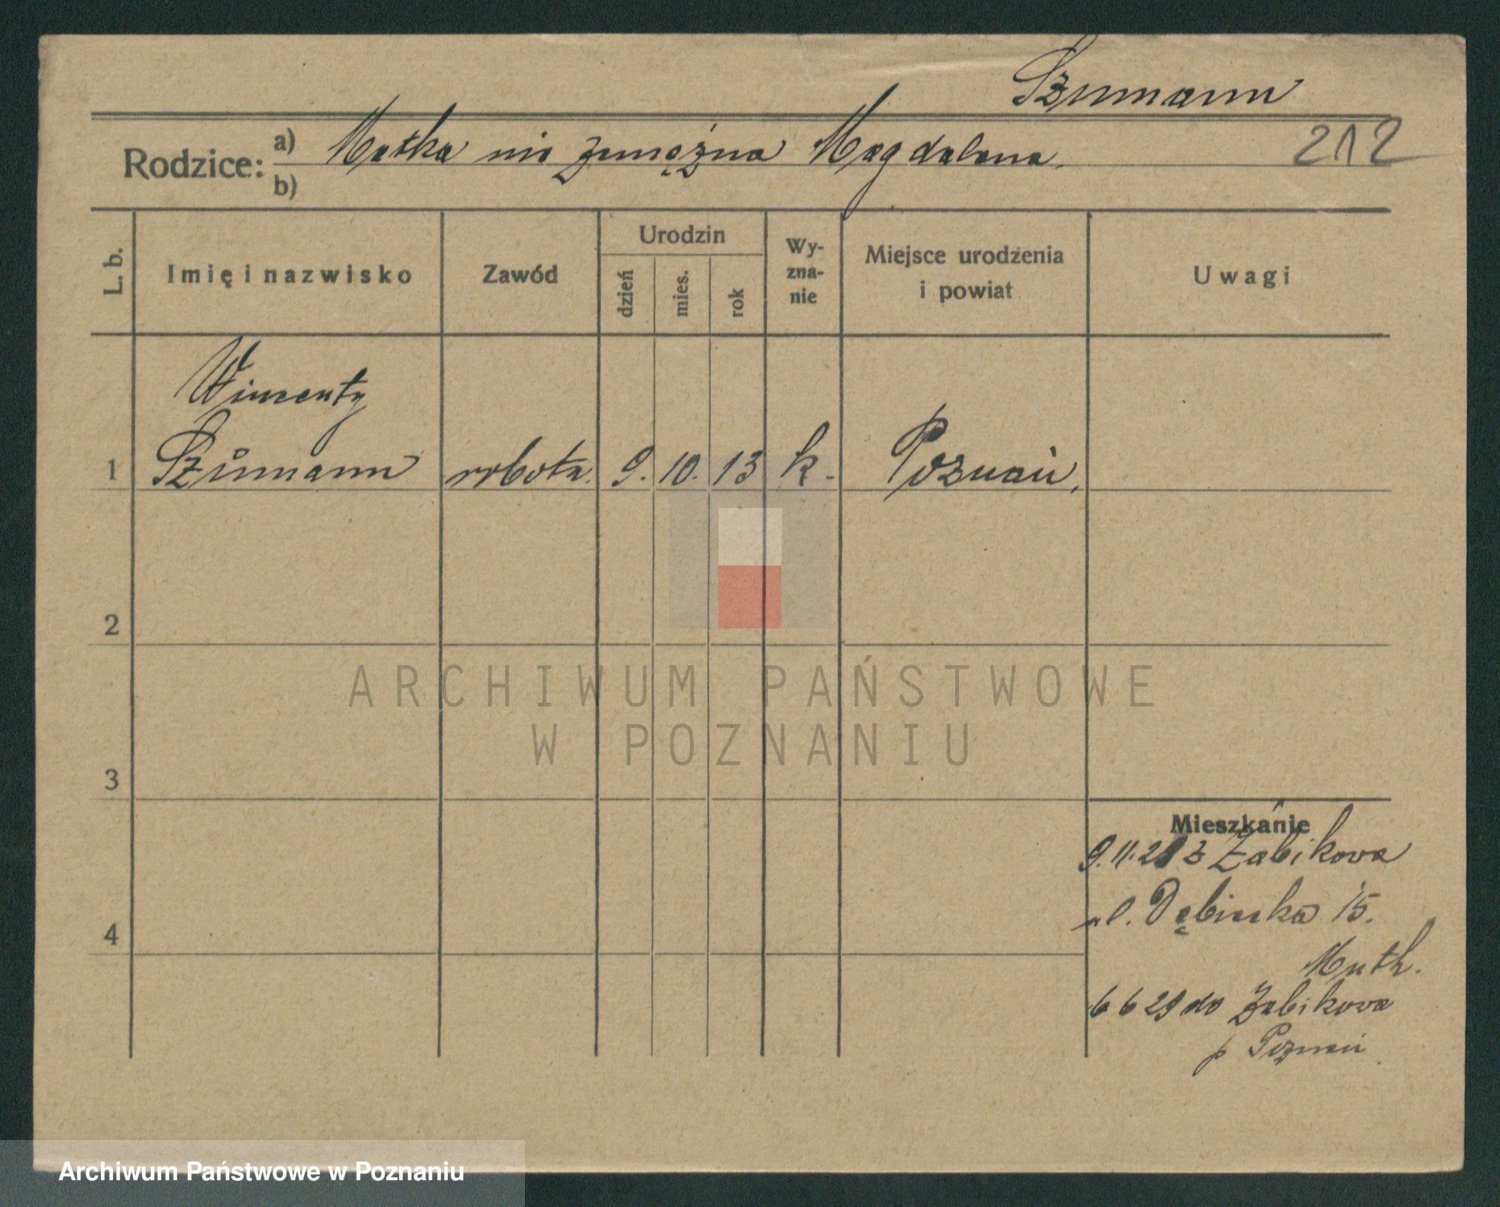 Szumann
Rodzice: a) Matka nie zamężna Magdalena. 212
b)
L. b.
Imię i nazwisko
Zawód
Urodzin
dzień
mies.
rok
Wy-
zna-
nie
Miejsce urodzenia
i powiat
Uwagi
Wincenty
1 Szumann robotn. 9. 10. 13 k. Poznań,
2
ARCHIWUM PAŃSTWOWE
W POZNANIU
3
Mieszkanie
9.11.28 z Żabikova
ul. Dębińska 15.
4
Muth.
6 6 29 do Żabikova
p Poznań
Archiwum Państwowe w Poznaniu